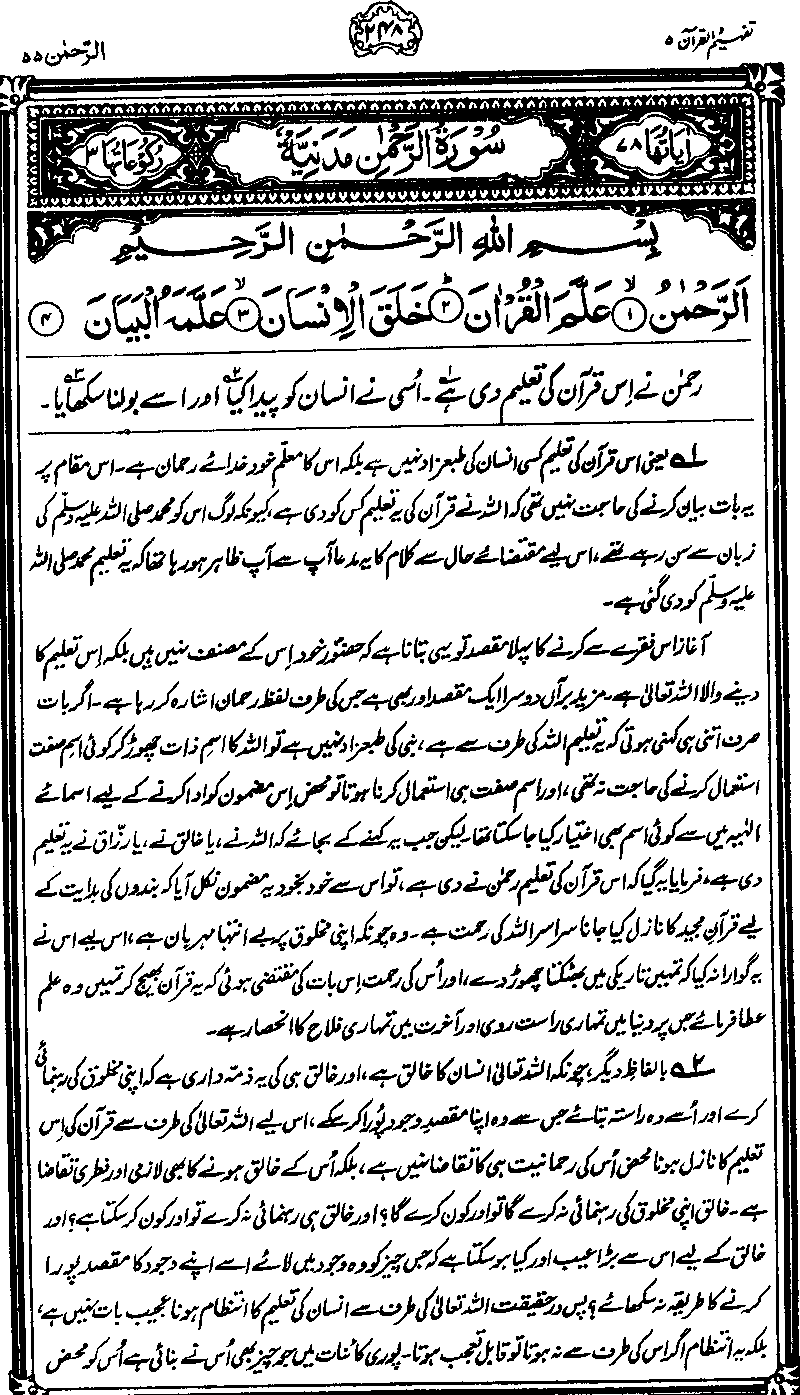 تفہیم القرآن ۵
۲۴۸
الرّحمٰن ۵۵
اٰیَاتُهَا ۷۸
سُوْرَةُ الرَّحْمٰنِ مَدَنِيَّةٌ
رُكُوْعَاتُهَا ۳
بِسْمِ اللهِ الرَّحْمٰنِ الرَّحِيْمِ
اَلرَّحْمٰنُ ۱ عَلَّمَ الْقُرْاٰنَ ۲ خَلَقَ الْاِنْسَانَ ۳ عَلَّمَهُ الْبَيَانَ ۴
رحمٰن نے اِس قرآن کی تعلیم دی ہے۱۔ اُسی نے انسان کو پیدا کیا۲ اور اسے بولنا سکھایا۳۔
۱ یعنی اس قرآن کی تعلیم کسی انسان کی طبعزاد نہیں ہے بلکہ اس کا معلّم خود خدائے رحمان ہے۔ اس مقام پر
یہ بات بیان کرنے کی حاجت نہیں تھی کہ اللہ نے قرآن کی یہ تعلیم کس کو دی ہے، کیونکہ لوگ اس کو محمد صلی اللہ علیہ وسلّم کی
زبان سے سن رہے تھے، اس لیے مقتضائے حال سے کلام کا یہ مدعا آپ سے آپ ظاہر ہو رہا تھا کہ یہ تعلیم محمد صلی اللہ
علیہ وسلّم کو دی گئی ہے۔
آغاز اس فقرے سے کرنے کا پہلا مقصد تو یہی بتانا ہے کہ حضورؐ خود اِس کے مصنف نہیں ہیں بلکہ اِس تعلیم کا
دینے والا اللہ تعالیٰ ہے۔ مزید برآں دوسرا ایک مقصد اور بھی ہے جس کی طرف لفظ رحمان اشارہ کر رہا ہے۔ اگر بات
صرف اتنی ہی کہنی ہوتی کہ یہ تعلیم اللہ کی طرف سے ہے، نبی کی طبعزاد نہیں ہے تو اللہ کا اسمِ ذات چھوڑ کر کوئی اسم صفت
استعمال کرنے کی حاجت نہ تھی، اور اسم صفت ہی استعمال کرنا ہوتا تو محض اِس مضمون کو ادا کرنے کے لیے اسمائے
الٰہیہ میں سے کوئی اسم بھی اختیار کیا جا سکتا تھا۔ لیکن جب یہ کہنے کے بجائے کہ اللہ نے، یا خالق نے، یا رزّاق نے یہ تعلیم
دی ہے، فرمایا یہ گیا کہ اس قرآن کی تعلیم رحمٰن نے دی ہے، تو اس سے خود بخود یہ مضمون نکل آیا کہ بندوں کی ہدایت کے
لیے قرآن مجید کا نازل کیا جانا سراسر اللہ کی رحمت ہے۔ وہ چونکہ اپنی مخلوق پر بے انتہا مہربان ہے، اس لیے اس نے
یہ گوارا نہ کیا کہ تمہیں تاریکی میں بھٹکتا چھوڑ دے، اور اُس کی رحمت اِس بات کی مقتضی ہوئی کہ یہ قرآن بھیج کر تمہیں وہ علم
عطا فرمائے جس پر دنیا میں تمہاری راست روی اور آخرت میں تمہاری فلاح کا انحصار ہے۔
۲ بالفاظِ دیگر، چونکہ اللہ تعالیٰ انسان کا خالق ہے، اور خالق ہی کی یہ ذمّہ داری ہے کہ اپنی مخلوق کی رہنمائی
کرے اور اُسے وہ راستہ بتائے جس سے وہ اپنا مقصدِ وجود پُورا کر سکے، اس لیے اللہ تعالیٰ کی طرف سے قرآن کی اِس
تعلیم کا نازل ہونا محض اُس کی رحمانیت ہی کا تقاضا نہیں ہے، بلکہ اُس کے خالق ہونے کا بھی لازمی اور فطری تقاضا
ہے۔ خالق اپنی مخلوق کی رہنمائی نہ کرے گا تو اور کون کرے گا؟ اور خالق ہی رہنمائی نہ کرے تو اور کون کر سکتا ہے؟ اور
خالق کے لیے اس سے بڑا عیب اور کیا ہو سکتا ہے کہ جس چیز کو وہ وجود میں لائے اسے اپنے وجود کا مقصد پورا
کرنے کا طریقہ نہ سکھائے؟ پس درحقیقت اللہ تعالیٰ کی طرف سے انسان کی تعلیم کا انتظام ہونا عجیب بات نہیں ہے،
بلکہ یہ انتظام اگر اس کی طرف سے نہ ہوتا تو قابلِ تعجب ہوتا۔ پوری کائنات میں جو چیز بھی اُس نے بنائی ہے اُس کو محض